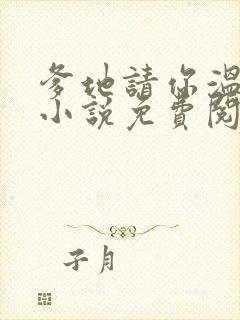 爹地請你溫
小說免費閱
子月